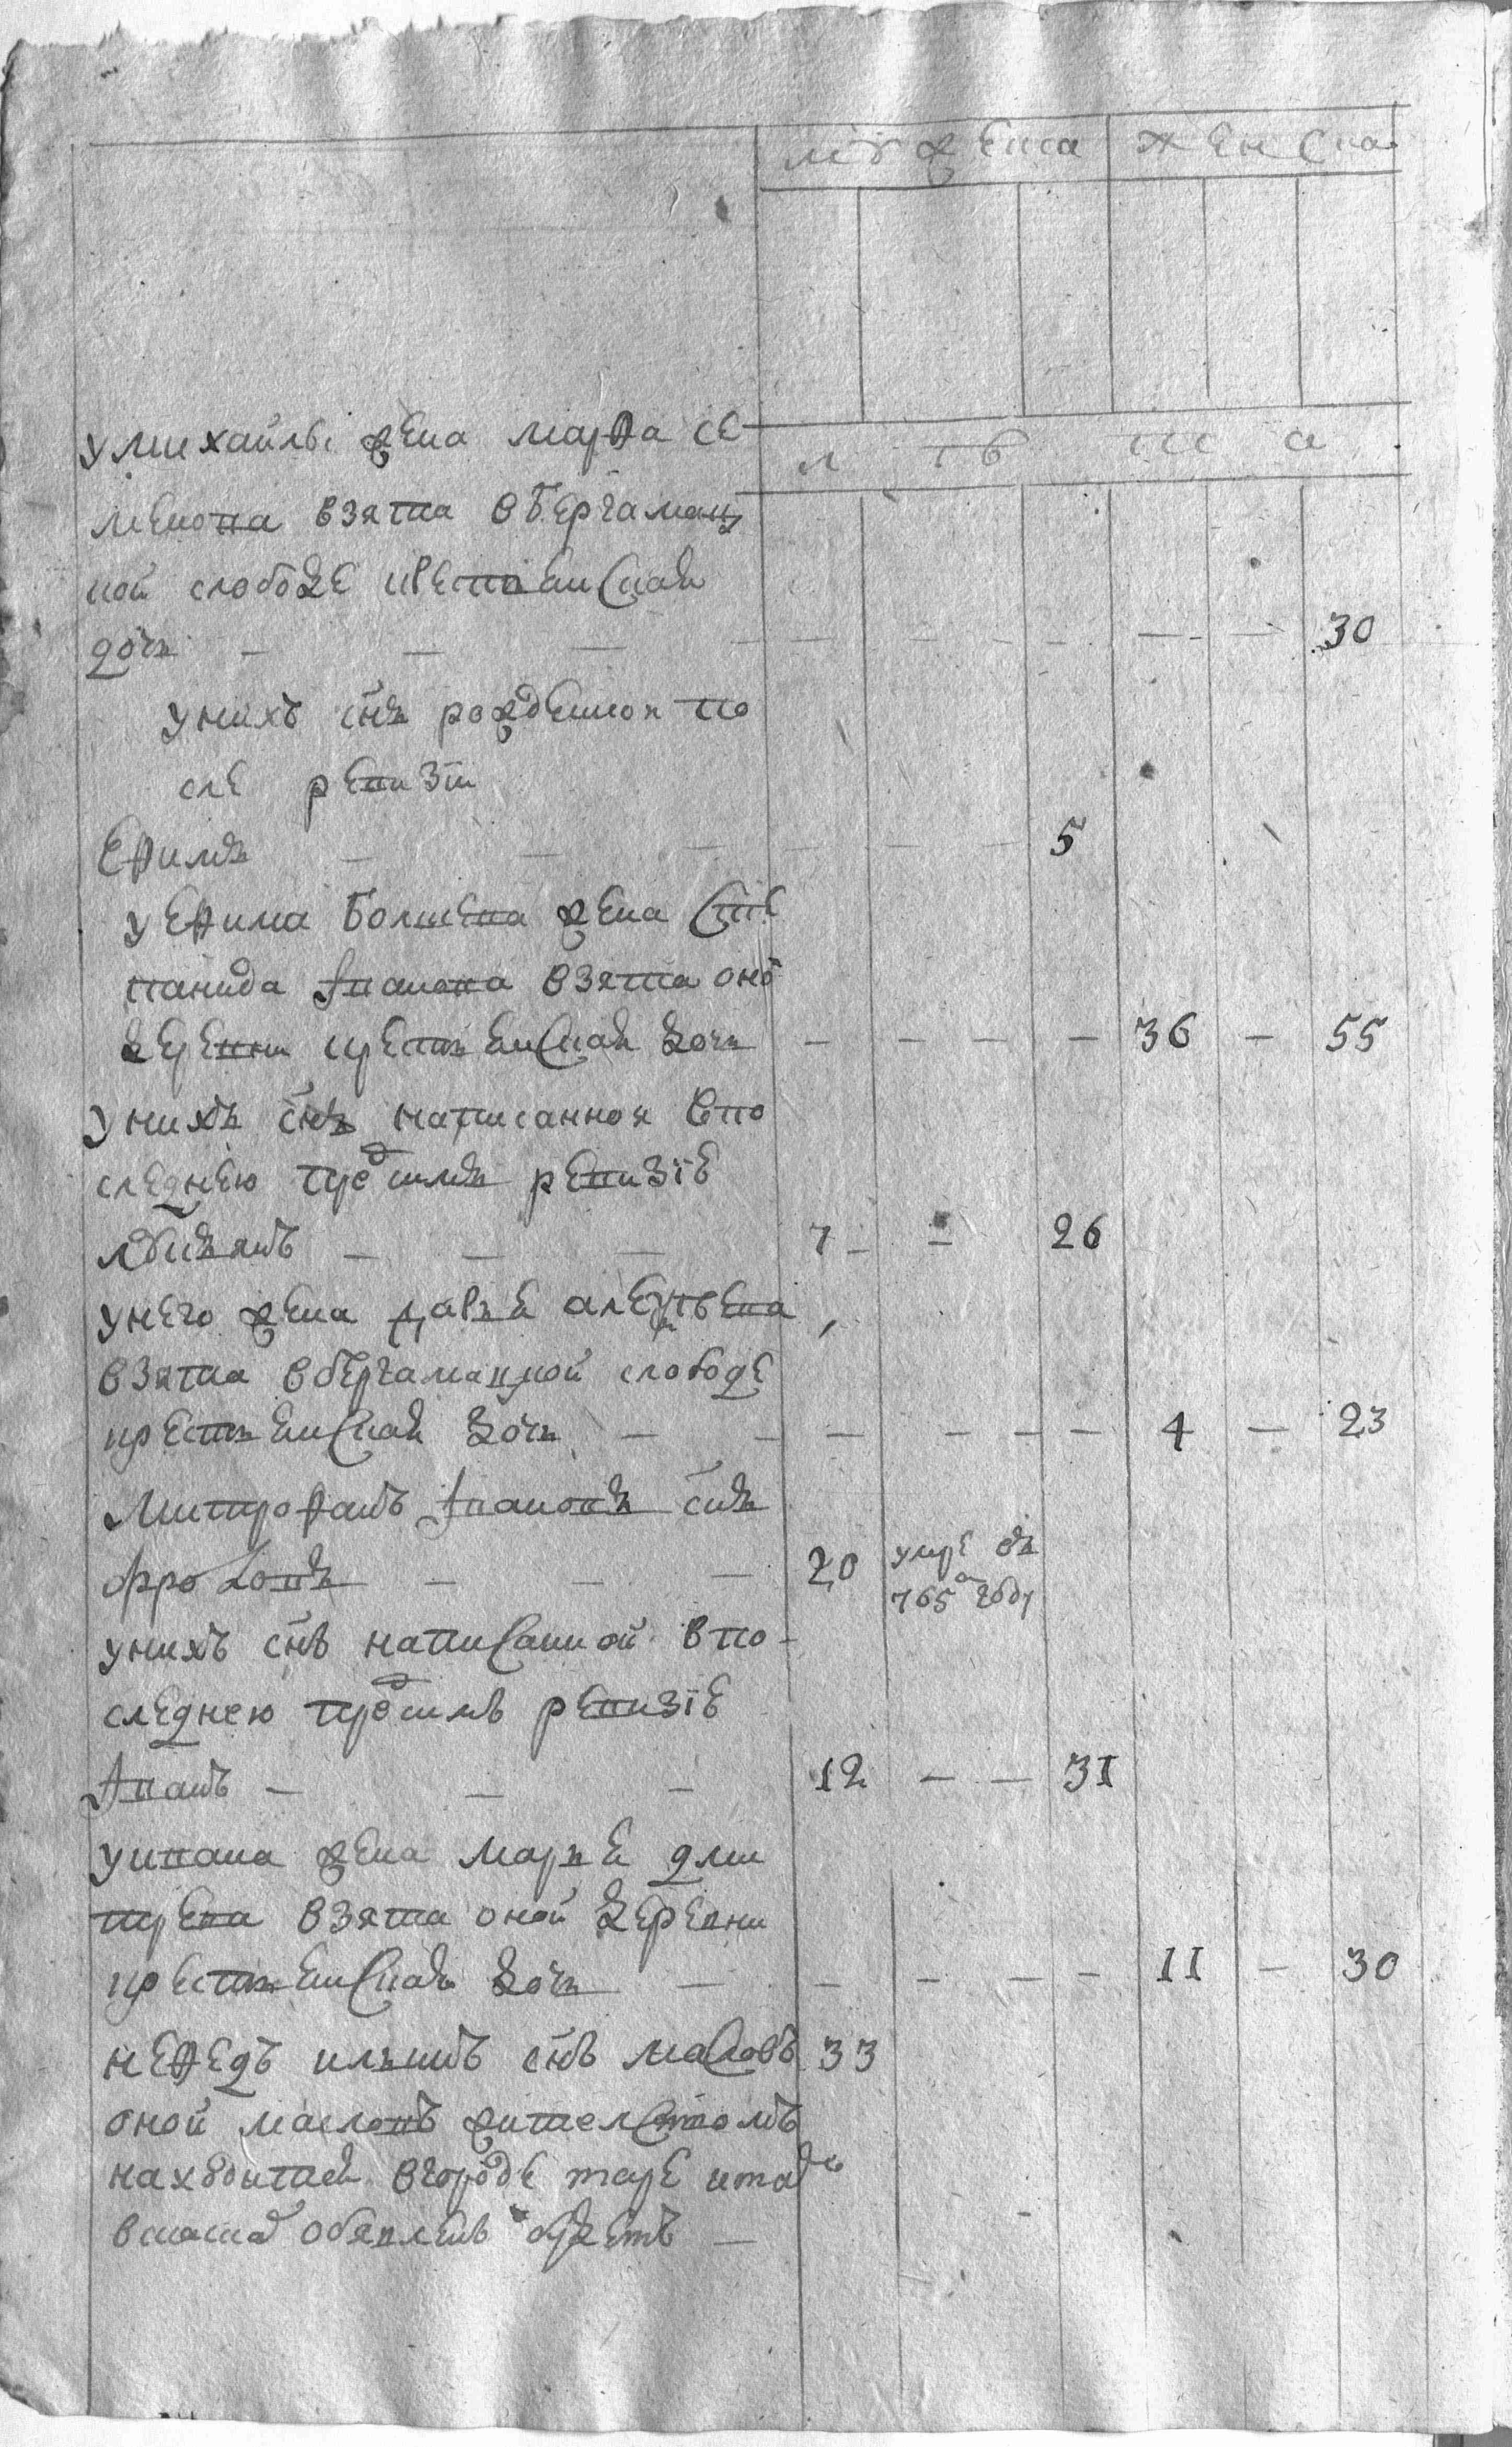 мужеска женска
у михайлы жена марфа се
лѣта
менова взята в бергамац
кой слободе крестьенская
дочь — — — — — — — — — 30
у нихъ снъ рожденной по
сле ревизіи
Ефимъ — — — — — — 5
у Ефима болшева жена сте
панида иванова взята оной
деревни крестьенская дочь — — — — 36 — 55
у нихъ снъ написанной впо
следнею пред симъ ревизіе
лукьянъ — — — 7 — — 26
у него жена дарье алеѯѣева
взята в бергамацкой слободе
крестьенская дочь — — — — — — 4 — 23
Митрофанъ Ивановъ снъ
фроловъ — — — 20 умре въ
765м году
у нихъ снъ написанной в по
следнею пред симъ ревизіе
Иванъ — — — 12 — — 31
у ивана жена марье дми
трева взята оной деревни
крестьенская дочь — — — — — 11 — 30
нефедъ ильинъ снъ масловъ 33
оной масловъ жителствомъ
находитца в городе таре и тамо
в сказке обявленъ будетъ —